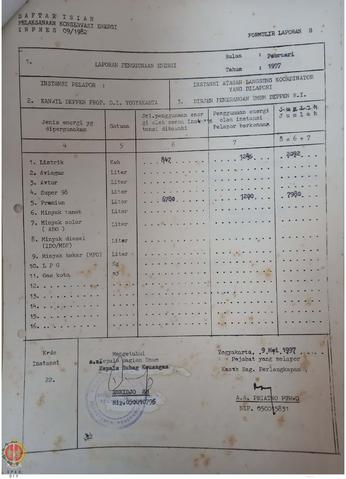 DAFTAR ISIAN
PELAKSANAAN KONSERVASI ENERGI
INPRES 09/1982
FORMULIR LAPORAN B
1.
LAPORAN PENGGUNAAN ENERGI
Bulan : Pebruari
Tahun : 1997
INSTANSI PELAPOR :
2. KANWIL DEPPEN PROP. D.I. YOGYAKARTA
INSTANSI ATASAN LANGSUNG KOORDINATOR
YANG DILAPORI
3. DIRJEN PENERANGAN UMUM DEPPEN R.I.
Jenis energi yg dipergunakan
Satuan
Jml.penggunaan ener
gi oleh semua instan
tansi dibawahi
Penggunaan energi
oleh instansi
Pelapor
Jumlah
8 = 6 + 7
4 5 6 7
1. Listrik Kwh 847
2. Avtgas Liter
3. Avtur Liter
4. Super 98 Liter
5. Premium Liter 6780 1200 7980
6. Minyak tanah Liter
7. Minyak solar Liter
( ADO )
8. Minyak diesel Liter
(IDO/MDF)
9. Minyak bakar (MFO) Liter
10. L P G Kg
11. Gas kota M3
12.
13.
14.
15.
16.
Kode
Instansi
22.
Mengetahui
a.n. Kepala Bagian Umum
Kepala Subag Keuangan
Yogyakarta, 9 Mei 1997
Pejabat yang melapor
Kasub Bag. Perlengkapan